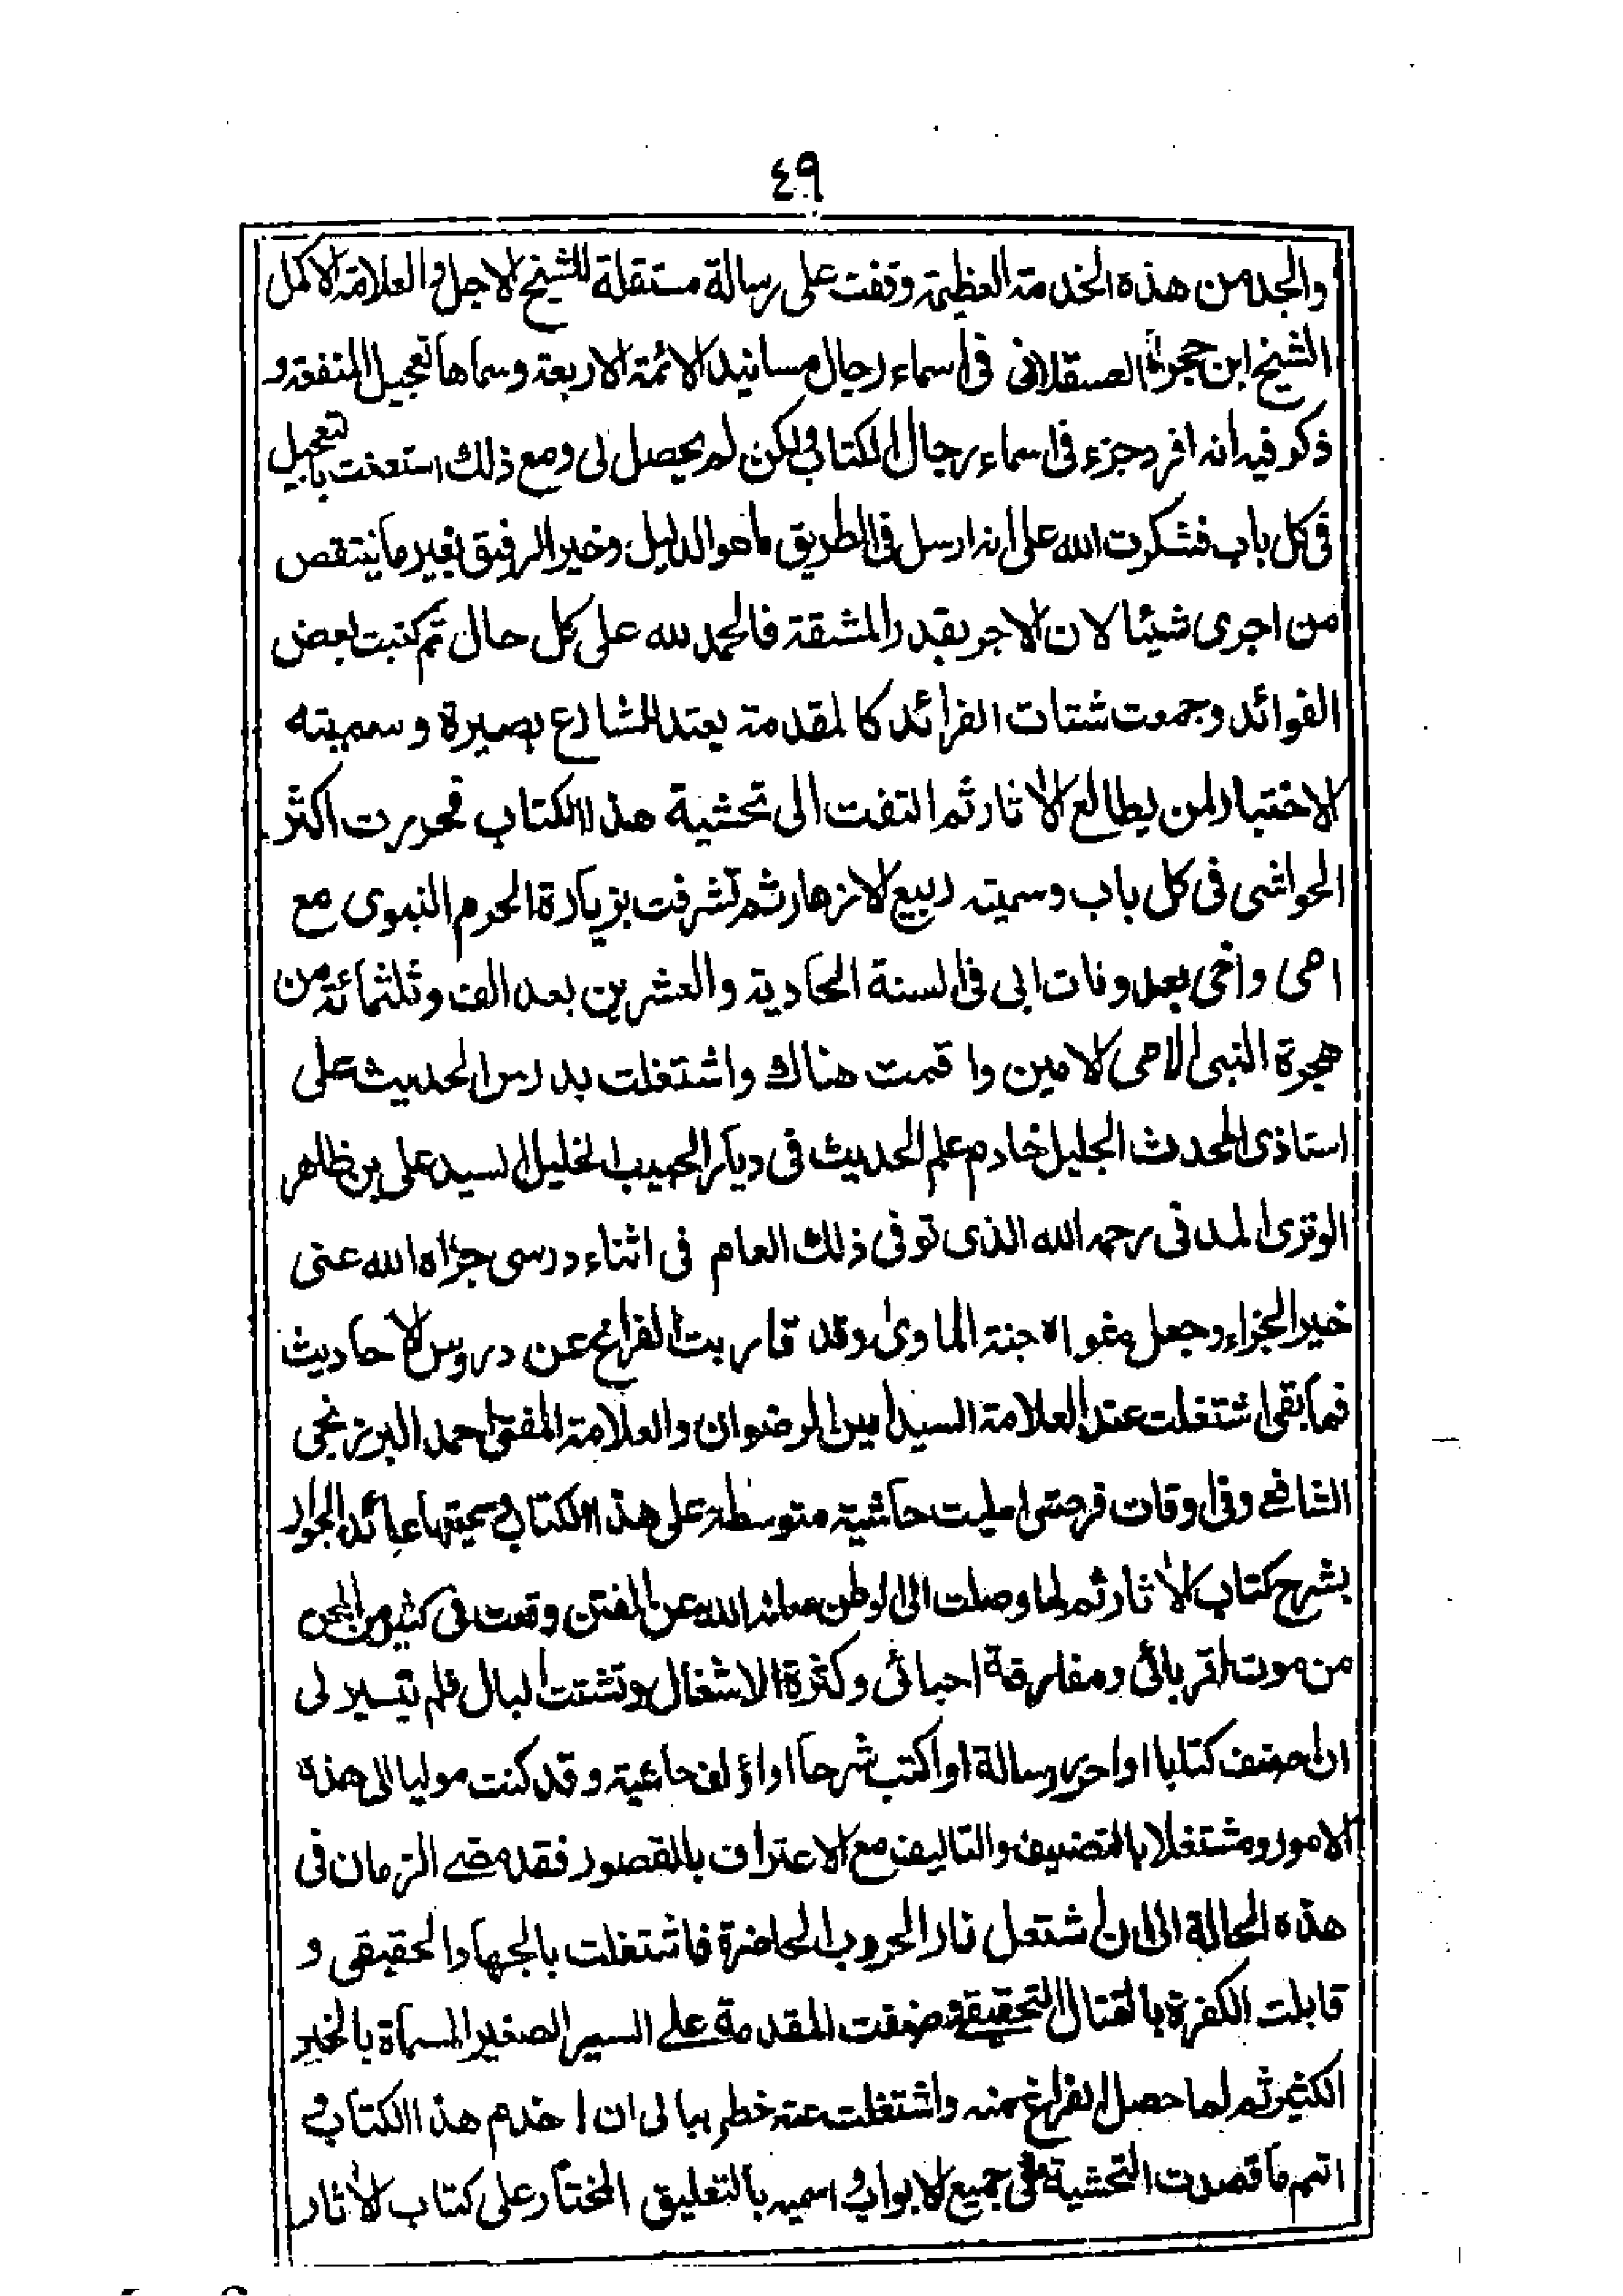 ٤٩
والجد من هذه الخدمة العظيمة وقفت على رسالة مستقلة للشيخ الاجل والعلامة الاكمل
الشيخ ابن حجر العسقلانى فى اسماء رجال مسانيد الائمة الاربعة وسماها تعجيل المنفعة و
ذكر فيه انه افرد جزء فى اسماء رجال الكتاب ولكن لم يحصل لى ومع ذلك استعنت بالتعجيل
فى كل باب فشكرت الله على انه ارسل فى الطريق ما هو الدليل وخير الرفيق بغير ما ينتقص
من اجرى شيئا لان الاجر بقدر المشقة فالحمد لله على كل حال ثم كتبت بعض
الفوائد وجمعت شتات الفرائد كالمقدمة يعتد للشارع بصيرة وسميته
الاختبار لمن يطالع الاٰثار ثم التفت الى تحشية هذا الكتاب فحررت اكثر
الحواشى فى كل باب وسميته ربيع الازهار ثم تشرفت بزيارة الحرم النبوى مع
امى واخى بعد وفات ابى فى السنة الحادية والعشرين بعد الف وثلثمائة من
هجرة النبى الامى الامين واقمت هناك واشتغلت بدرس الحديث على
استاذى المحدث الجليل خادم علم الحديث فى ديار الحبيب الخليل السيد على بن ظاهر
الوترى المدنى رحمه الله الذى توفى ذلك العام فى اثناء درسى جزاه الله عنى
خير الجزاء وجعل مثواه جنة الماوىٰ وقد قاربت الفراغ عن دروس الاحاديث
فما بقى اشتغلت عند العلامة السيد امين الرضوان والعلامة المفتى احمد البرزنجى
الشافعى وفى اوقات فرصتى امليت حاشية متوسطة على هذا الكتاب وسميتها عائد الجوار
بشرح كتاب الاٰثار ثم لما وصلت الى الوطن صانه الله عن الفتن وقعت فى كثير من المحن
من موت اقربائى ومفارقة احبائى وكثرة الاشغال وتشتت البال فلم يتيسر لى
ان اصنف كتابا او احرر رسالة او اكتب شرحا او اؤلف حاشية وقد كنت موليا الى هذه
الامور ومشتغلا بالتصنيف والتاليف مع الاعتراف بالقصور فقد مضے الزمان فى
هذه الحالة الى ان اشتعل نار الحروب الحاضرة فاشتغلت بالجهاد الحقيقى و
قابلت الكفرة بالقتال التحقيقى وصنفت المقدمة علے السير الصغير المسماة بالخير
الكثير ثم لما حصل الفراغ منه واشتغلت عنه خطر ببالى ان اخدم هذا الكتاب و
اتمم ما قصدت التحشية على جميع الابواب و اسميه بالتعليق المختار على كتاب الاٰثار